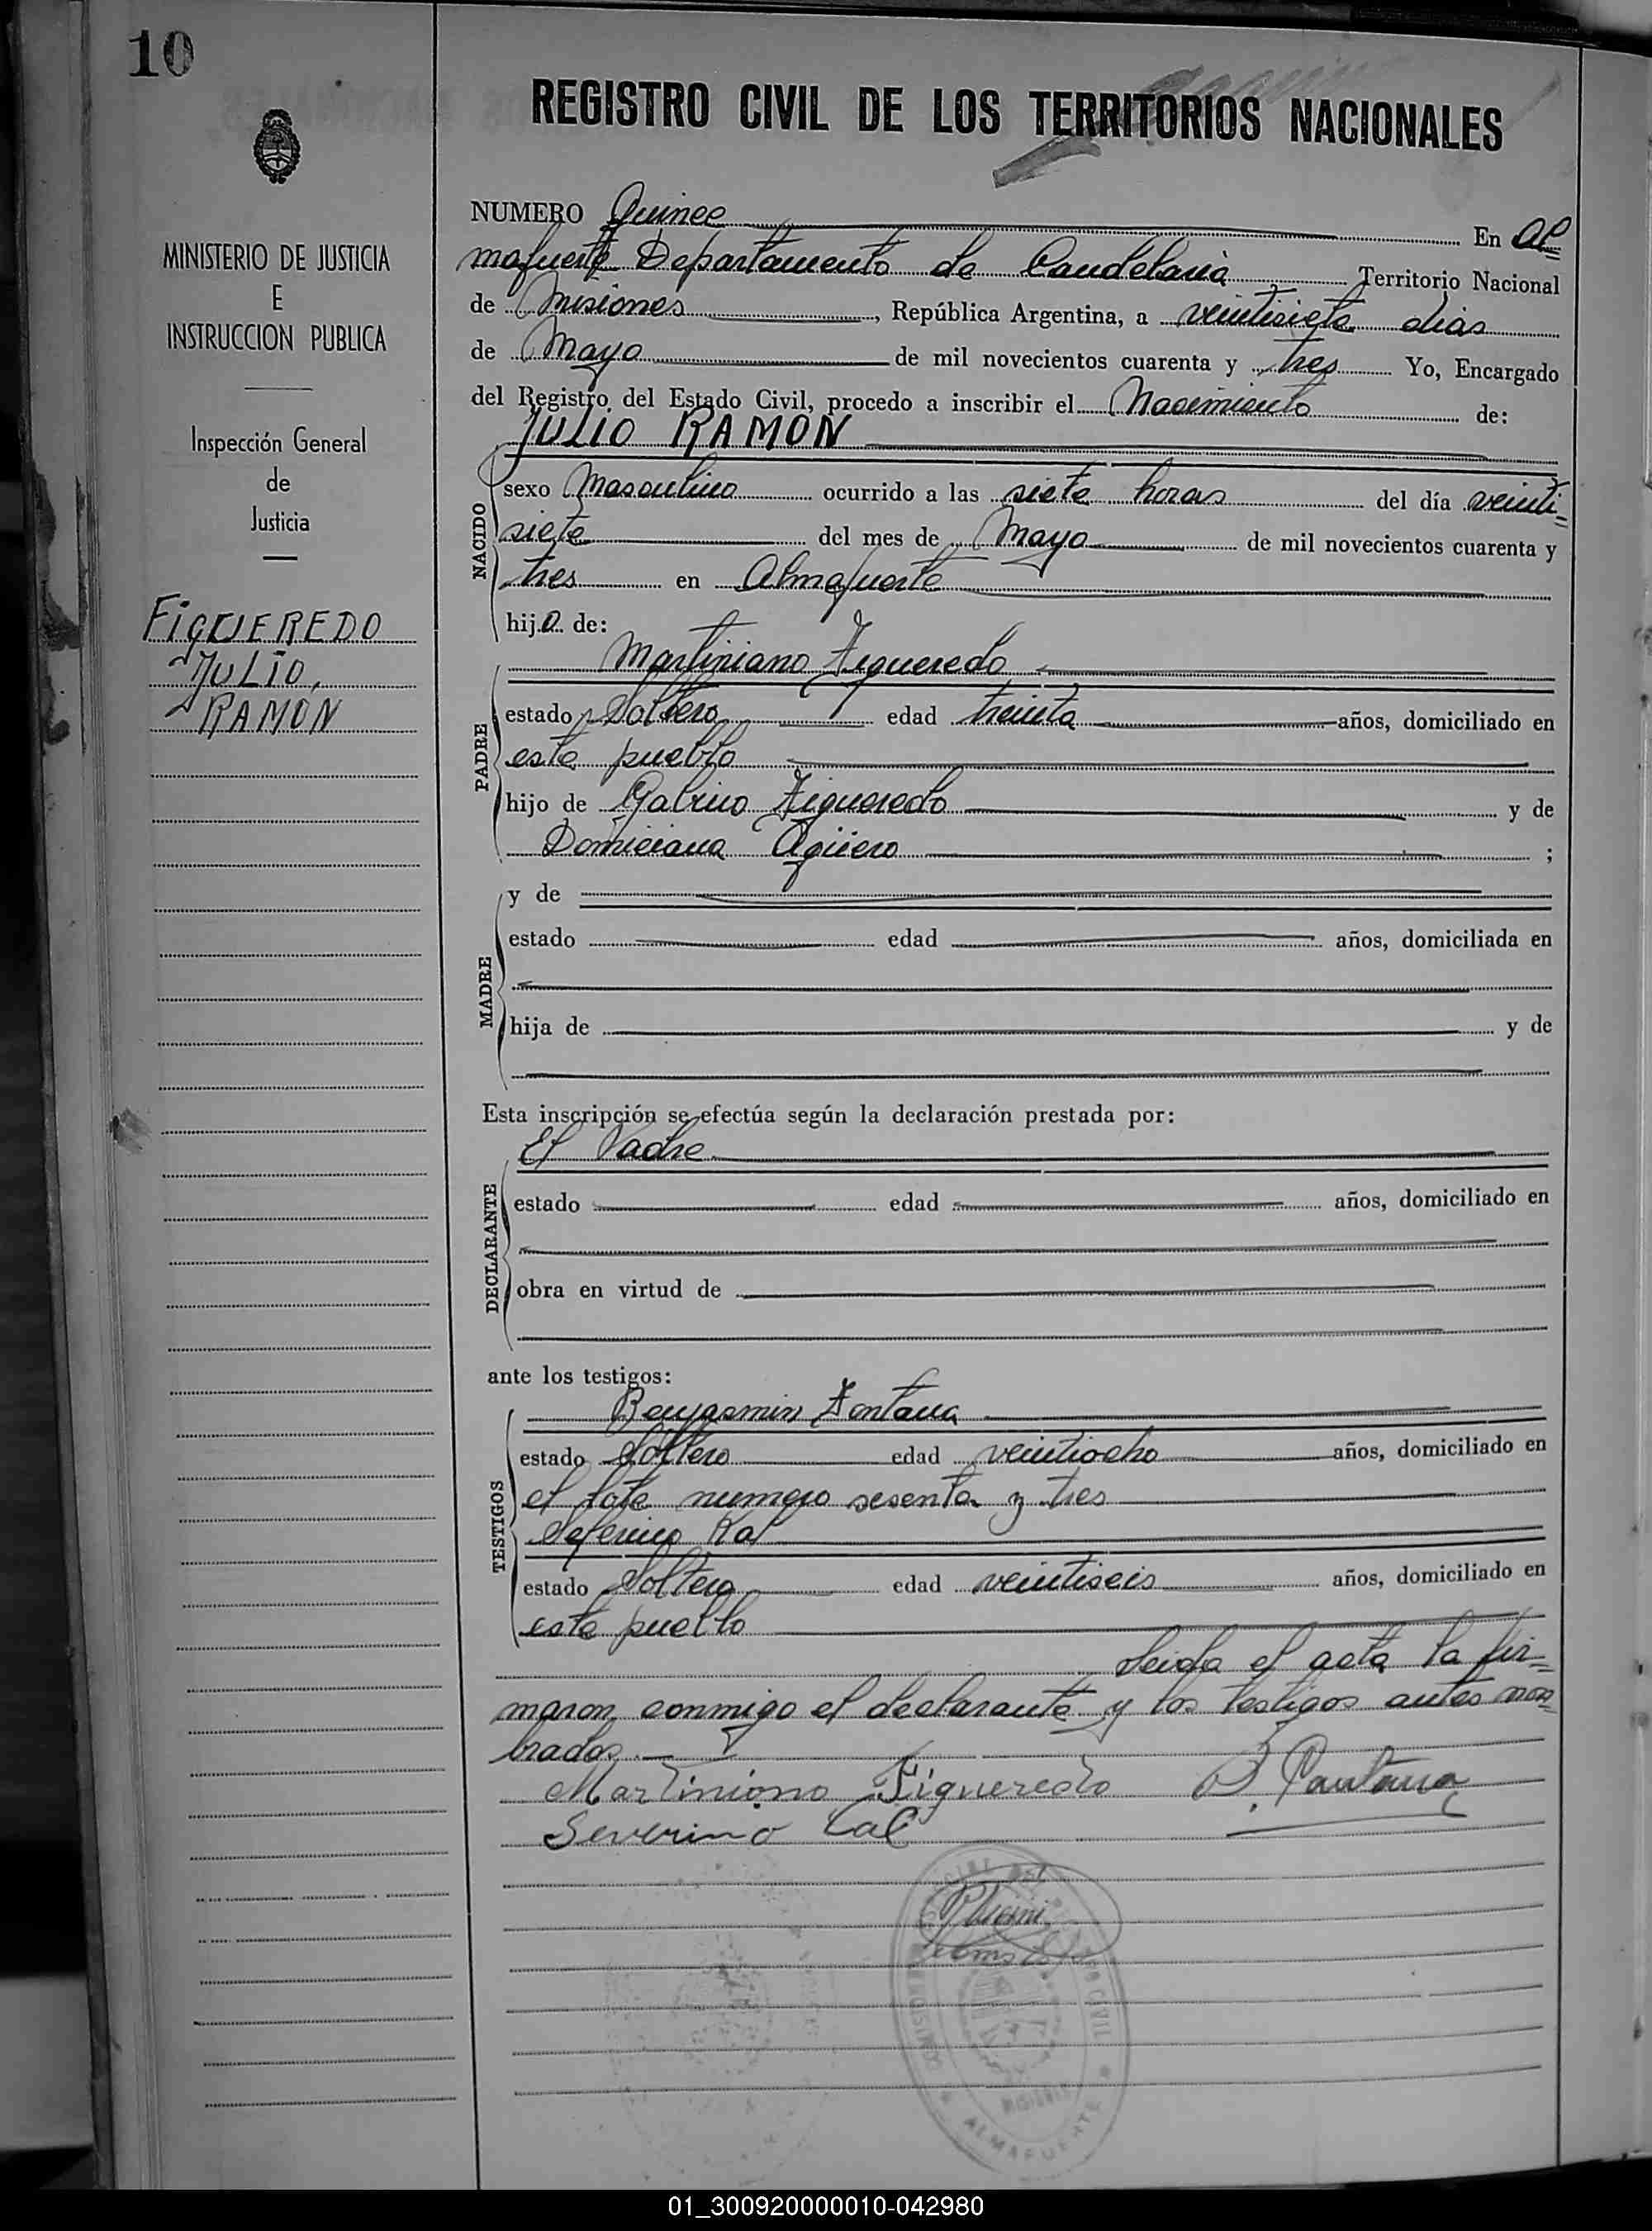 10
MINISTERIO DE JUSTICIA
E
INSTRUCCION PUBLICA
Inspección General
de
Justicia
FiGUEREDO
JULIO,
RAMON
REGISTRO CIVIL DE LOS TERRITORIOS NACIONALES
NUMERO Quince En Al=
mafuerte Departamento de Candelaria Territorio Nacional
de Misiones, República Argentina, a veintisiete dias
de Mayo de mil novecientos cuarenta y tres Yo, Encargado
del Registro del Estado Civil, procedo a inscribir el Nacimiento de:
JULIO RAMON
NACIDO
sexo Masculino ocurrido a las siete horas del día veinti=
siete del mes de Mayo de mil novecientos cuarenta y
tres en Almafuerte
hijo de:
Martiniano Figueredo
PADRE
estado Soltero edad treinta años, domiciliado en
este pueblo
hijo de Gabino Figueredo y de
Domiciana Agüero ;
MADRE
y de
estado edad años, domiciliada en
hija de y de
Esta inscripción se efectúa según la declaración prestada por:
El Padre
DECLARANTE
estado edad años, domiciliado en
obra en virtud de
ante los testigos:
Benjamin Fontana
TESTIGOS
estado Soltero edad veintiocho años, domiciliado en
el lote numero sesenta y tres
Kal
estado Soltero edad veintiseis años, domiciliado en
este pueblo
Leida el acta la fir=
maron conmigo el declarante y los testigos antes nom=
brados.—
Martiniano Figueredo B. Fontana
Severino Cal
REGISTRO CIVIL
MISIONES
ALMAFUERTE
01_300920000010-042980